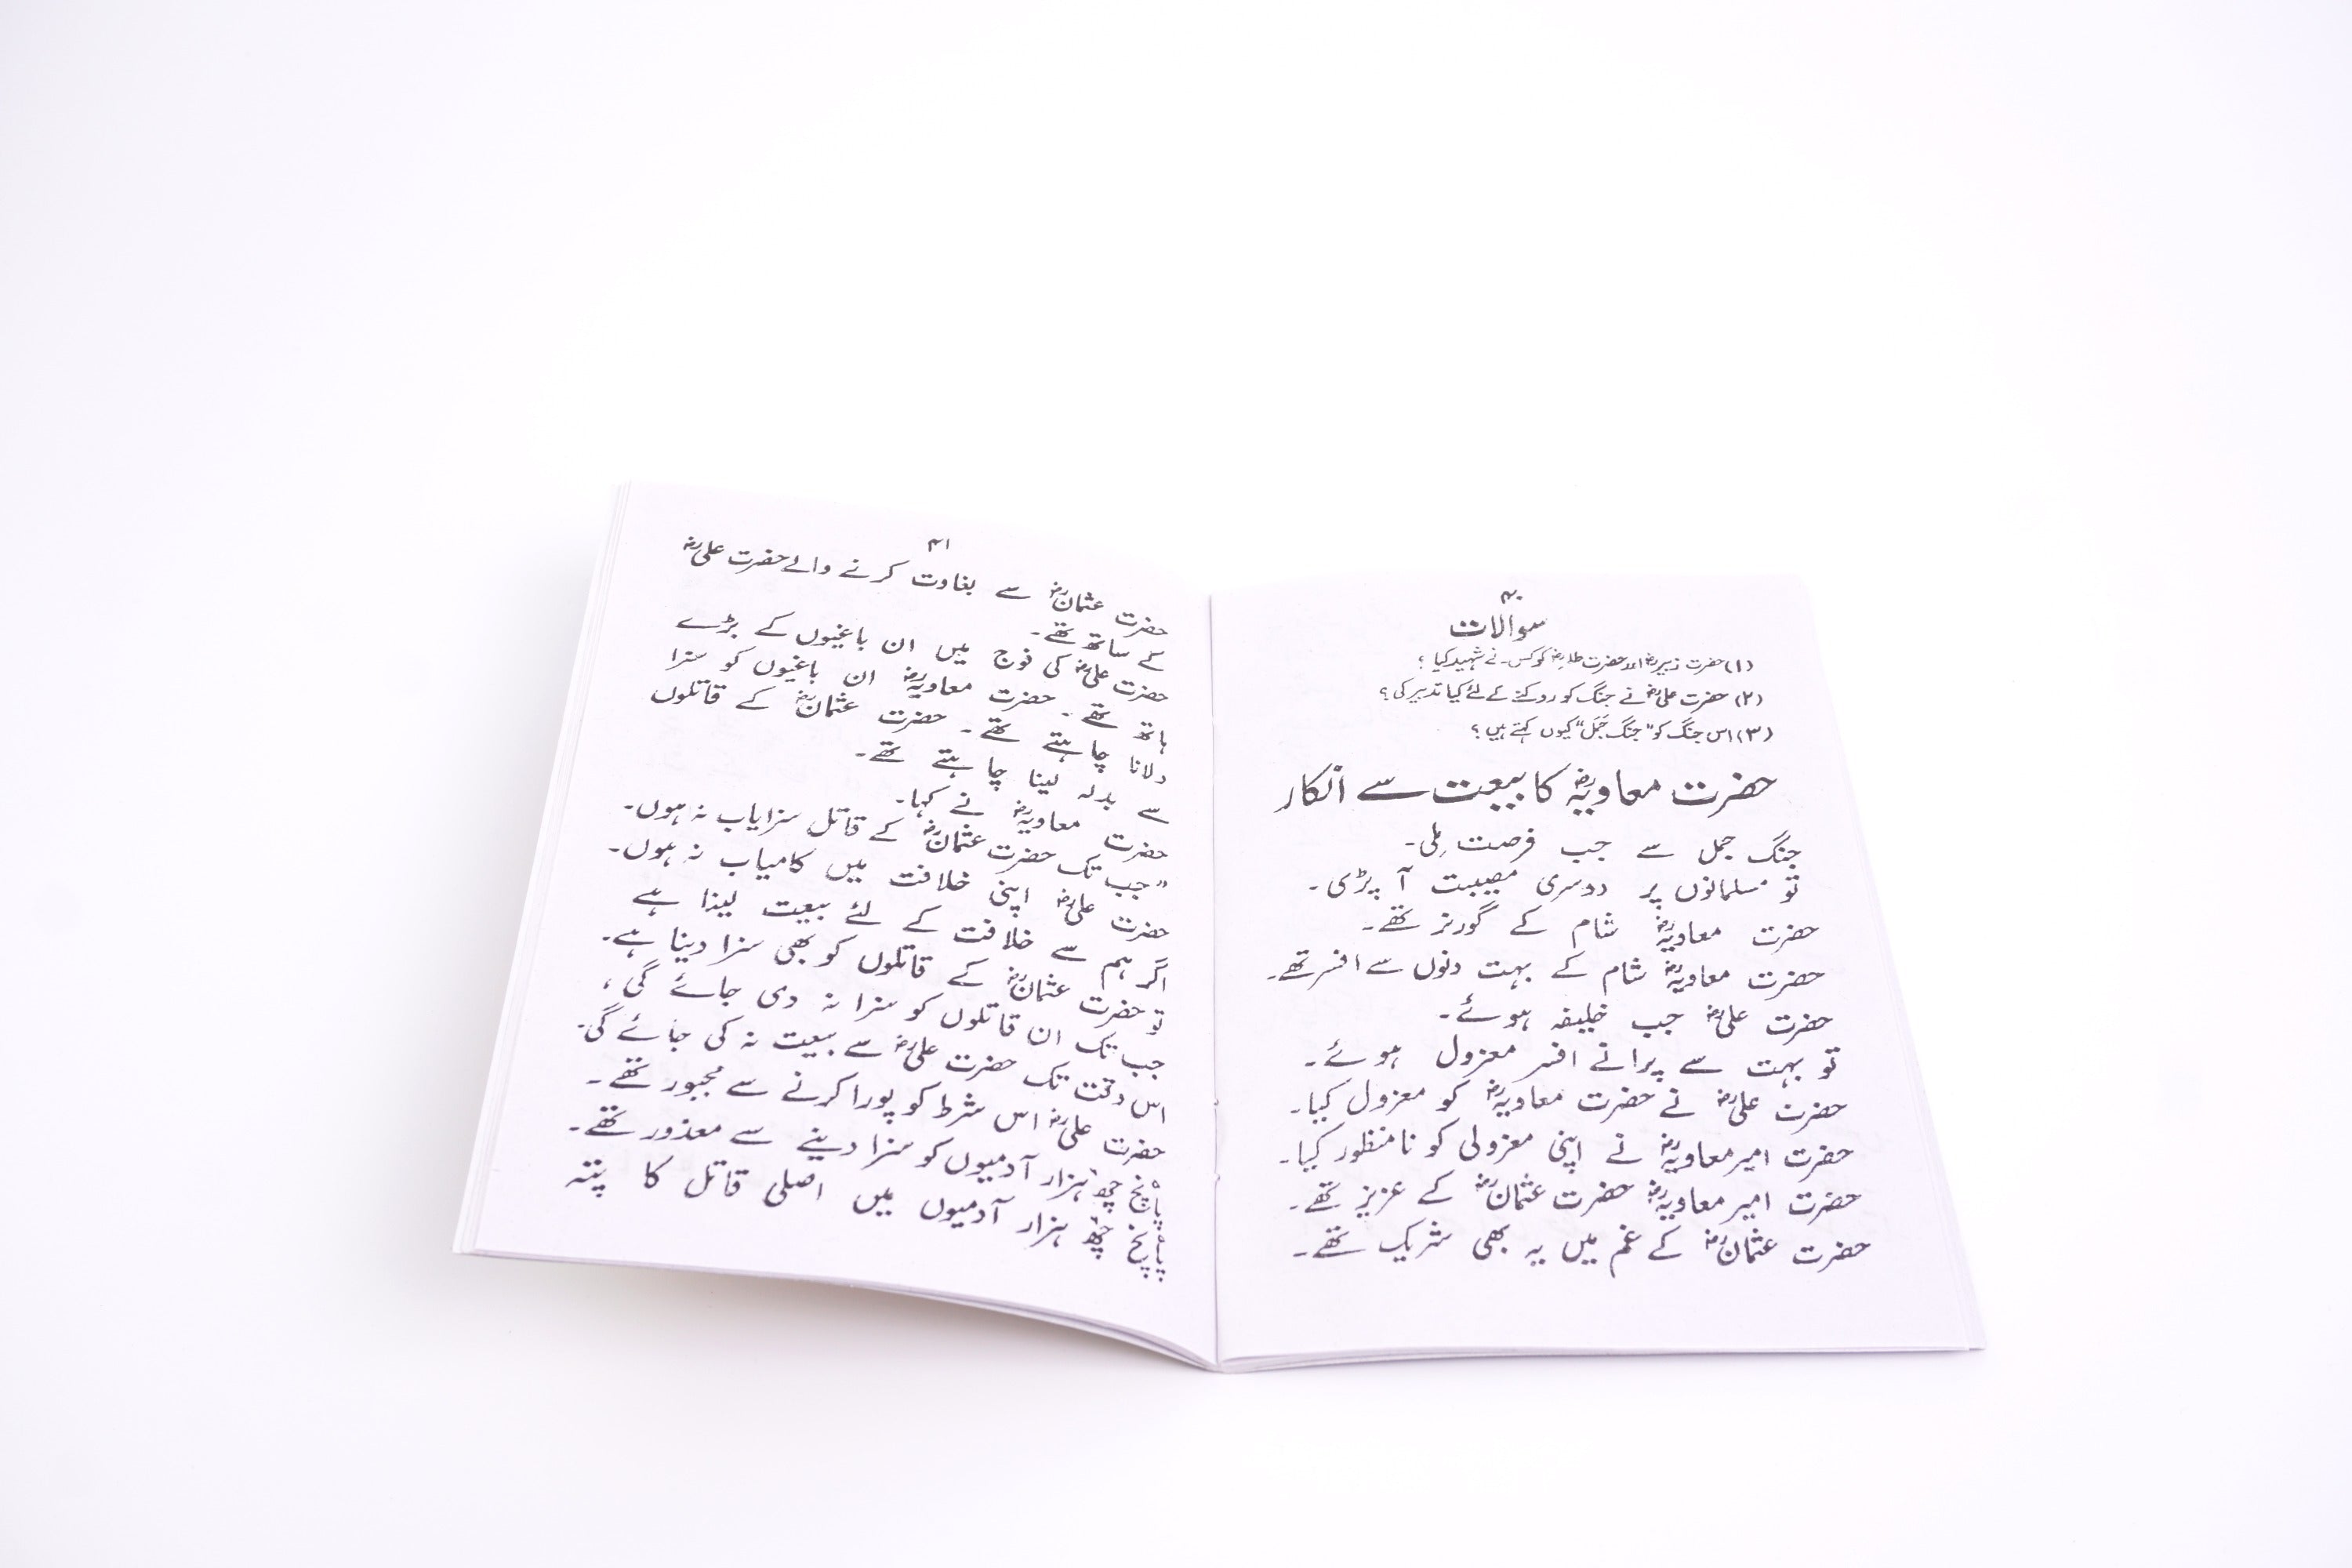 ۴۰
سوالات
(۱) حضرت زبیرؓ اور حضرت طلحہؓ کو کس نے شہید کیا؟
(۲) حضرت علیؓ نے جنگ کو روکنے کے لئے کیا تدبیر کی؟
(۳) اس جنگ کو "جنگ جَمَل" کیوں کہتے ہیں؟
حضرت معاویہؓ کا بیعت سے انکار
جنگ جمل سے جب فرصت مِلی۔
تو مسلمانوں پر دوسری مصیبت آ پڑی۔
حضرت معاویہؓ شام کے گورنر تھے۔
حضرت معاویہؓ شام کے بہت دنوں سے افسر تھے۔
حضرت علیؓ جب خلیفہ ہوئے۔
تو بہت سے پرانے افسر معزول ہوئے۔
حضرت علیؓ نے حضرت معاویہؓ کو معزول کیا۔
حضرت امیر معاویہؓ نے اپنی معزولی کو نا منظور کیا۔
حضرت امیر معاویہؓ حضرت عثمانؓ کے عزیز تھے۔
حضرت عثمانؓ کے غم میں یہ بھی شریک تھے۔
۴۱
حضرت عثمانؓ سے بغاوت کرنے والے حضرت علیؓ
کے ساتھ تھے۔
حضرت علیؓ کی فوج میں ان باغیوں کے بڑے
ہاتھ تھے۔ حضرت معاویہؓ ان باغیوں کو سزا
دلانا چاہتے تھے۔ حضرت عثمانؓ کے قاتلوں
سے بدلہ لینا چاہتے تھے۔
حضرت معاویہؓ نے کہا۔
"جب تک حضرت عثمانؓ کے قاتل سزایاب نہ ہوں۔
حضرت علیؓ اپنی خلافت میں کامیاب نہ ہوں۔
اگر ہم سے خلافت کے لئے بیعت لینا ہے
تو حضرت عثمانؓ کے قاتلوں کو بھی سزا دینا ہے۔
جب تک ان قاتلوں کو سزا نہ دی جائے گی،
اس وقت تک حضرت علیؓ سے بیعت نہ کی جائے گی۔
حضرت علیؓ اس شرط کو پورا کرنے سے مجبور تھے۔
پانچ چھ ہزار آدمیوں کو سزا دینے سے معذور تھے۔
پانچ چھ ہزار آدمیوں میں اصلی قاتل کا پتہ